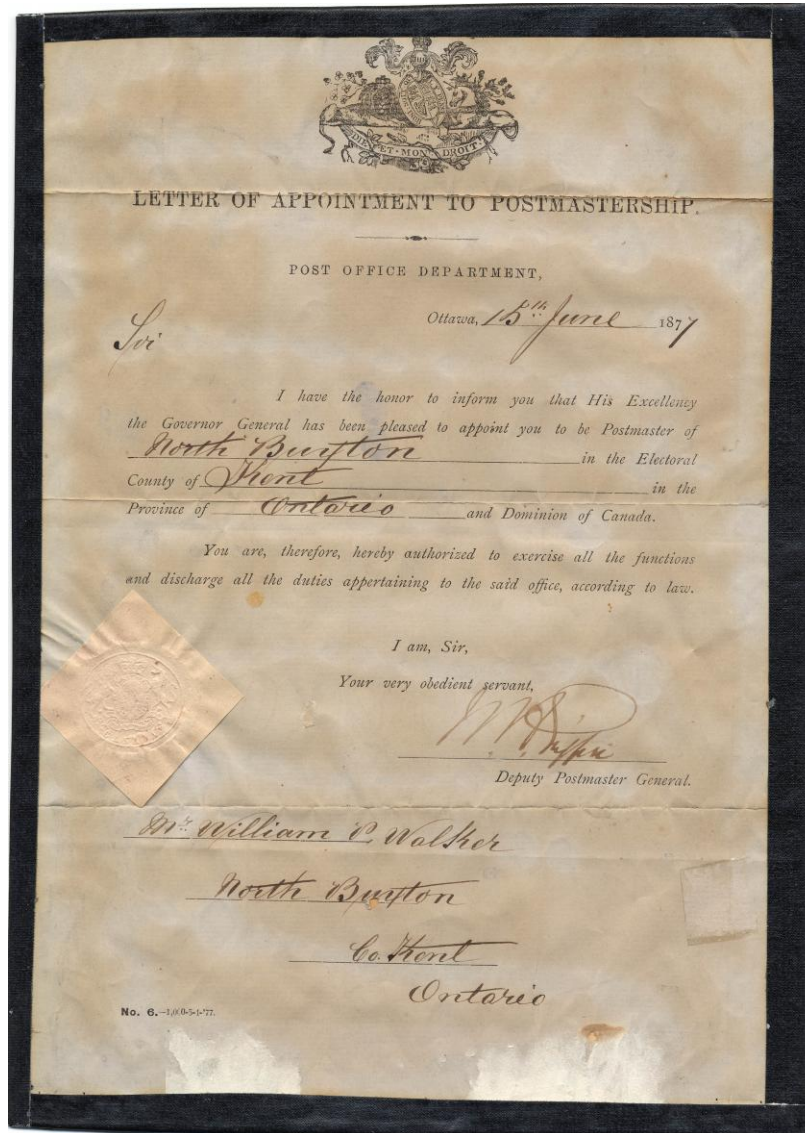 DIEU·ET·MON·DROIT.
LETTER OF APPOINTMENT TO POSTMASTERSHIP.
POST OFFICE DEPARTMENT,
Ottawa, 15th June 1877
Sir
I have the honor to inform you that His Excellency
the Governor General has been pleased to appoint you to be Postmaster of
North Buxton in the Electoral
County of Kent in the
Province of Ontario and Dominion of Canada.
You are, therefore, hereby authorized to exercise all the functions
and discharge all the duties appertaining to the said office, according to law.
I am, Sir,
Your very obedient servant,
Deputy Postmaster General.
Mr. William P. Walker
North Buxton
Co. Kent
Ontario
No. 6.—1,000-5-1-'77.